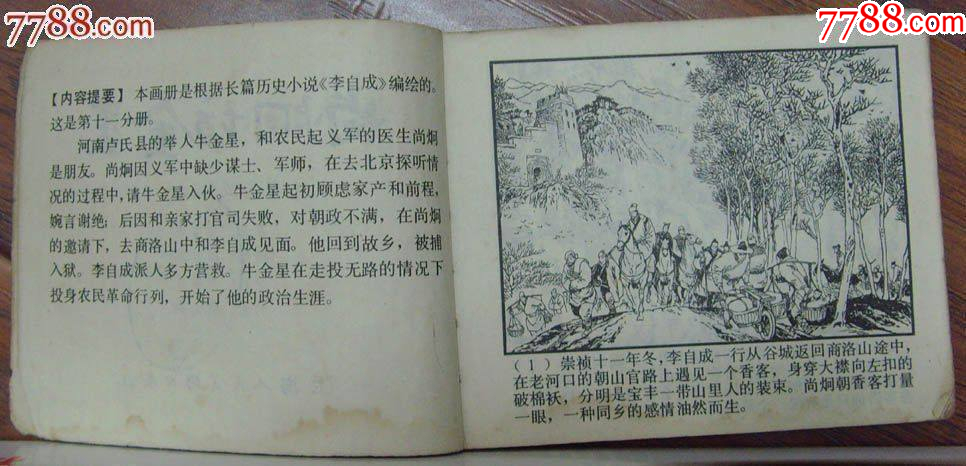 7788.com
7788.com
【内容提要】 本画册是根据长篇历史小说《李自成》编绘的。
这是第十一分册。
河南卢氏县的举人牛金星，和农民起义军的医生尚炯
是朋友。尚炯因义军中缺少谋士、军师，在去北京探听情
况的过程中，请牛金星入伙。牛金星起初顾虑家产和前程，
婉言谢绝；后因和亲家打官司失败，对朝政不满，在尚炯
的邀请下，去商洛山中和李自成见面。他回到故乡，被捕
入狱。李自成派人多方营救。牛金星在走投无路的情况下
投身农民革命行列，开始了他的政治生涯。
（1）崇祯十一年冬，李自成一行从谷城返回商洛山途中，
在老河口的朝山官路上遇见一个香客，身穿大襟向左扣的
破棉袄，分明是宝丰一带山里人的装束。尚炯朝香客打量
一眼，一种同乡的感情油然而生。